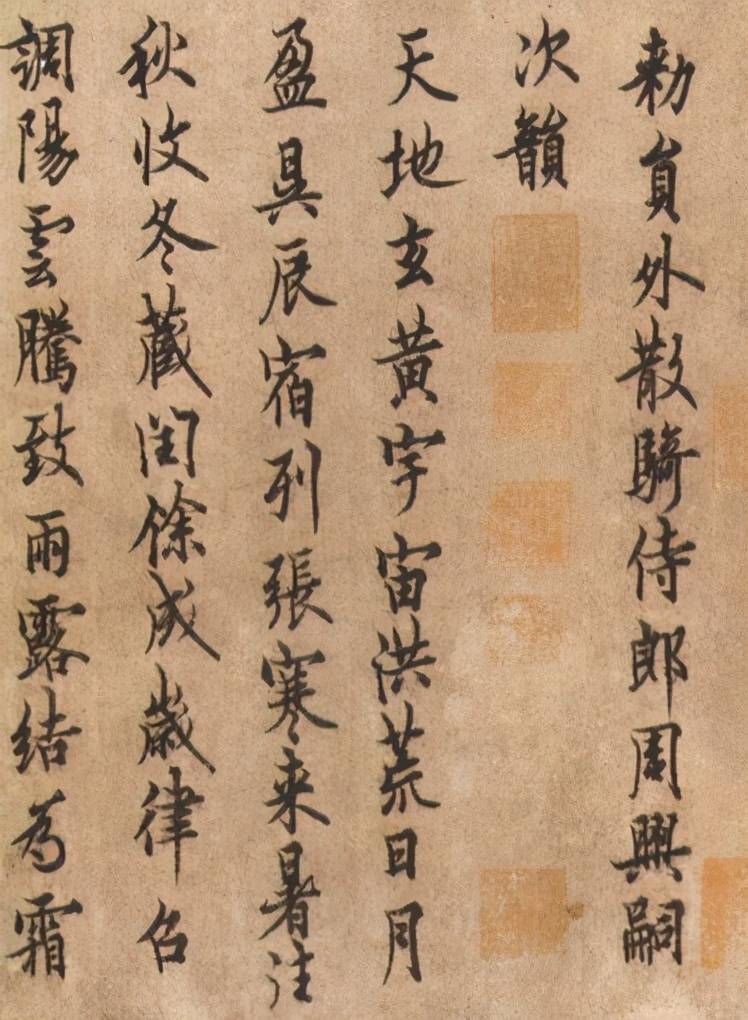 勑員外散騎侍郎周興嗣
次韻
天地玄黄宇宙洪荒日月
盈昃辰宿列張寒来暑往
秋收冬藏閏餘成歲律召
調陽雲騰致雨露結為霜